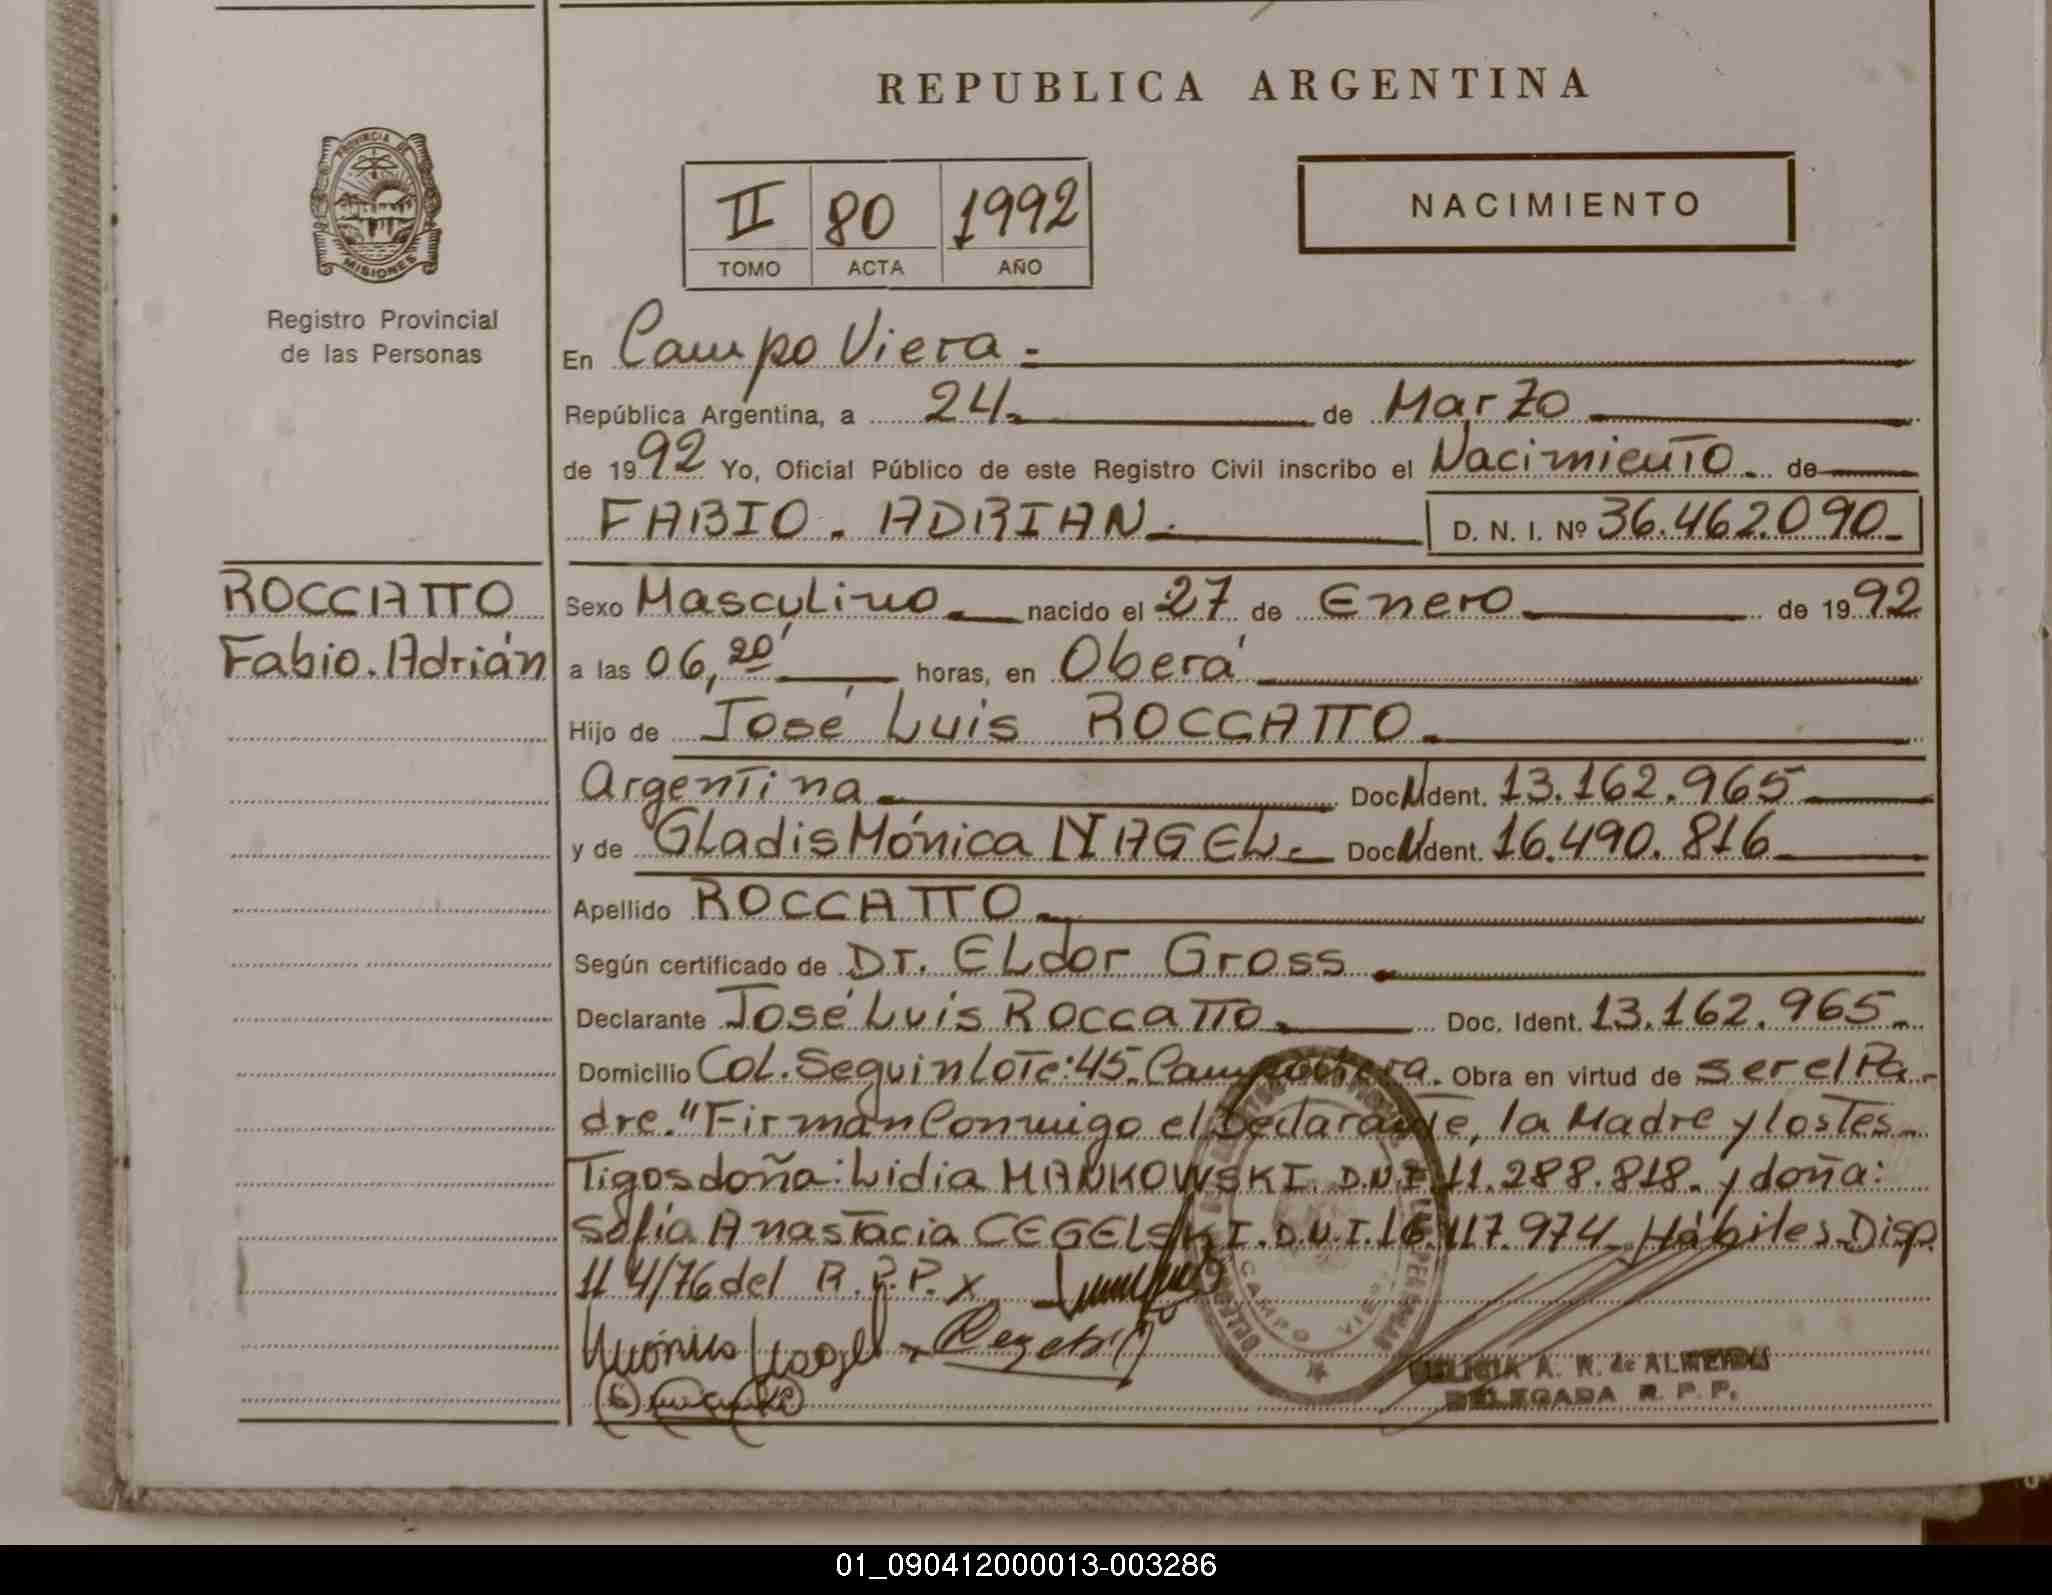 REPUBLICA ARGENTINA
PROVINCIA DE
MISIONES
Registro Provincial
de las Personas
II 80 1992
TOMO ACTA AÑO
NACIMIENTO
En Campo Viera.-
República Argentina, a 24 de Marzo
de 1992 Yo, Oficial Público de este Registro Civil inscribo el Nacimiento de
FABIO. ADRIAN. D. N. I. Nº 36.462.090
ROCCATTO
Fabio. Adrián
Sexo Masculino nacido el 27 de Enero de 1992
a las 06,20' horas, en Oberá
Hijo de José Luis ROCCATTO.
Argentina Doc. Ident. 13.162.965
y de GLadis Mónica NAGEL. Doc. Ident. 16.490.816
Apellido ROCCATTO
Según certificado de Dr. ELdor Gross
Declarante José Luis ROCCATTO. Doc. Ident. 13.162.965
Domicilio COL. Seguin Lote: 45. Campo Viera. Obra en virtud de ser el Pa-
dre. "Firman Conmigo el Declarante, la Madre y los Tes-
Tigos doña: Lidia MANKOWSKI. D.N.I. 11.288.818. y doña:
Sofía Anastacia CEGELSKI. D.N.I. 16.117.974 Hábiles Disp.
114/76 del R.P.P. x
Mónica Nagel x
CAMPO VIERA
A. R. de ALMEIDA
DELEGADA R. P. P.
01_090412000013-003286